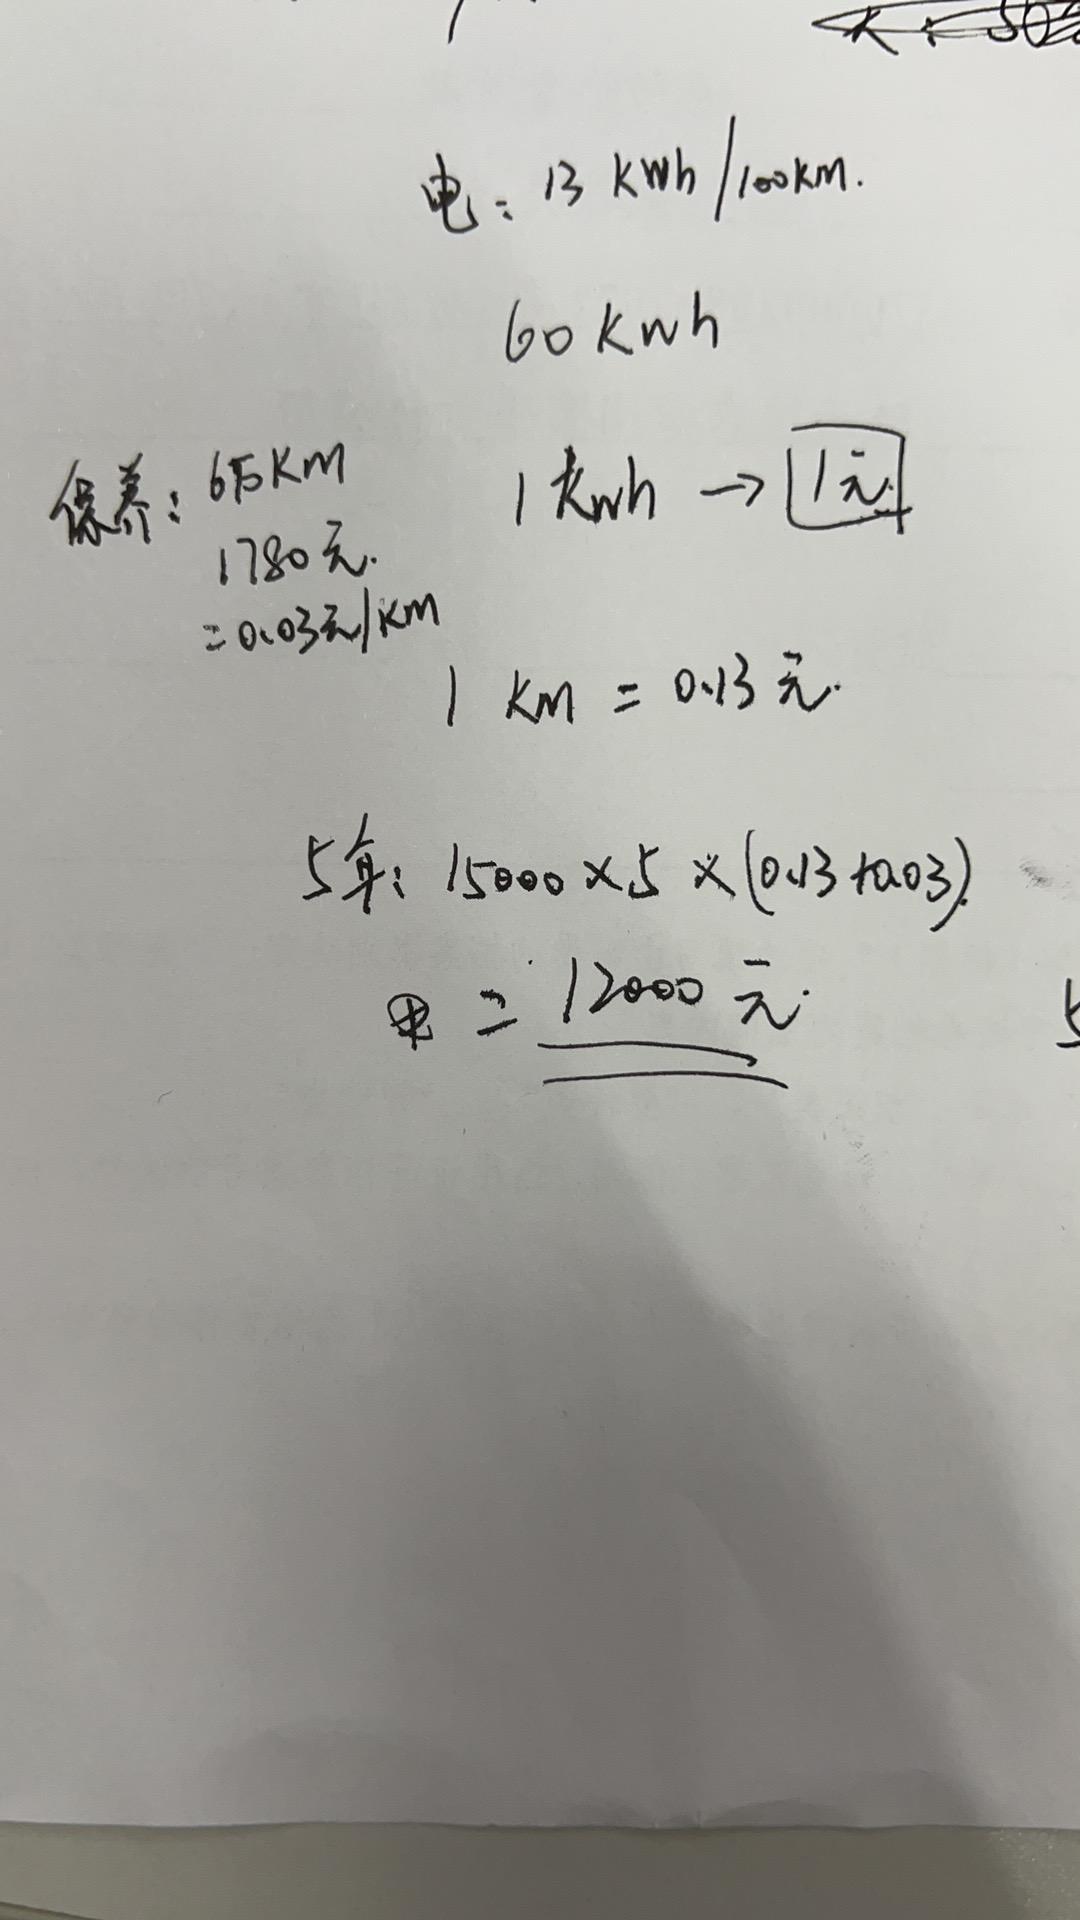 电: 13 kwh/100km.
60 kwh
1 kwh → 1元.
保养: 6万KM
1780元.
=0.03元/KM
1 KM = 0.13元.
5年: 15000×5×(0.13+0.03).
= 12000元.